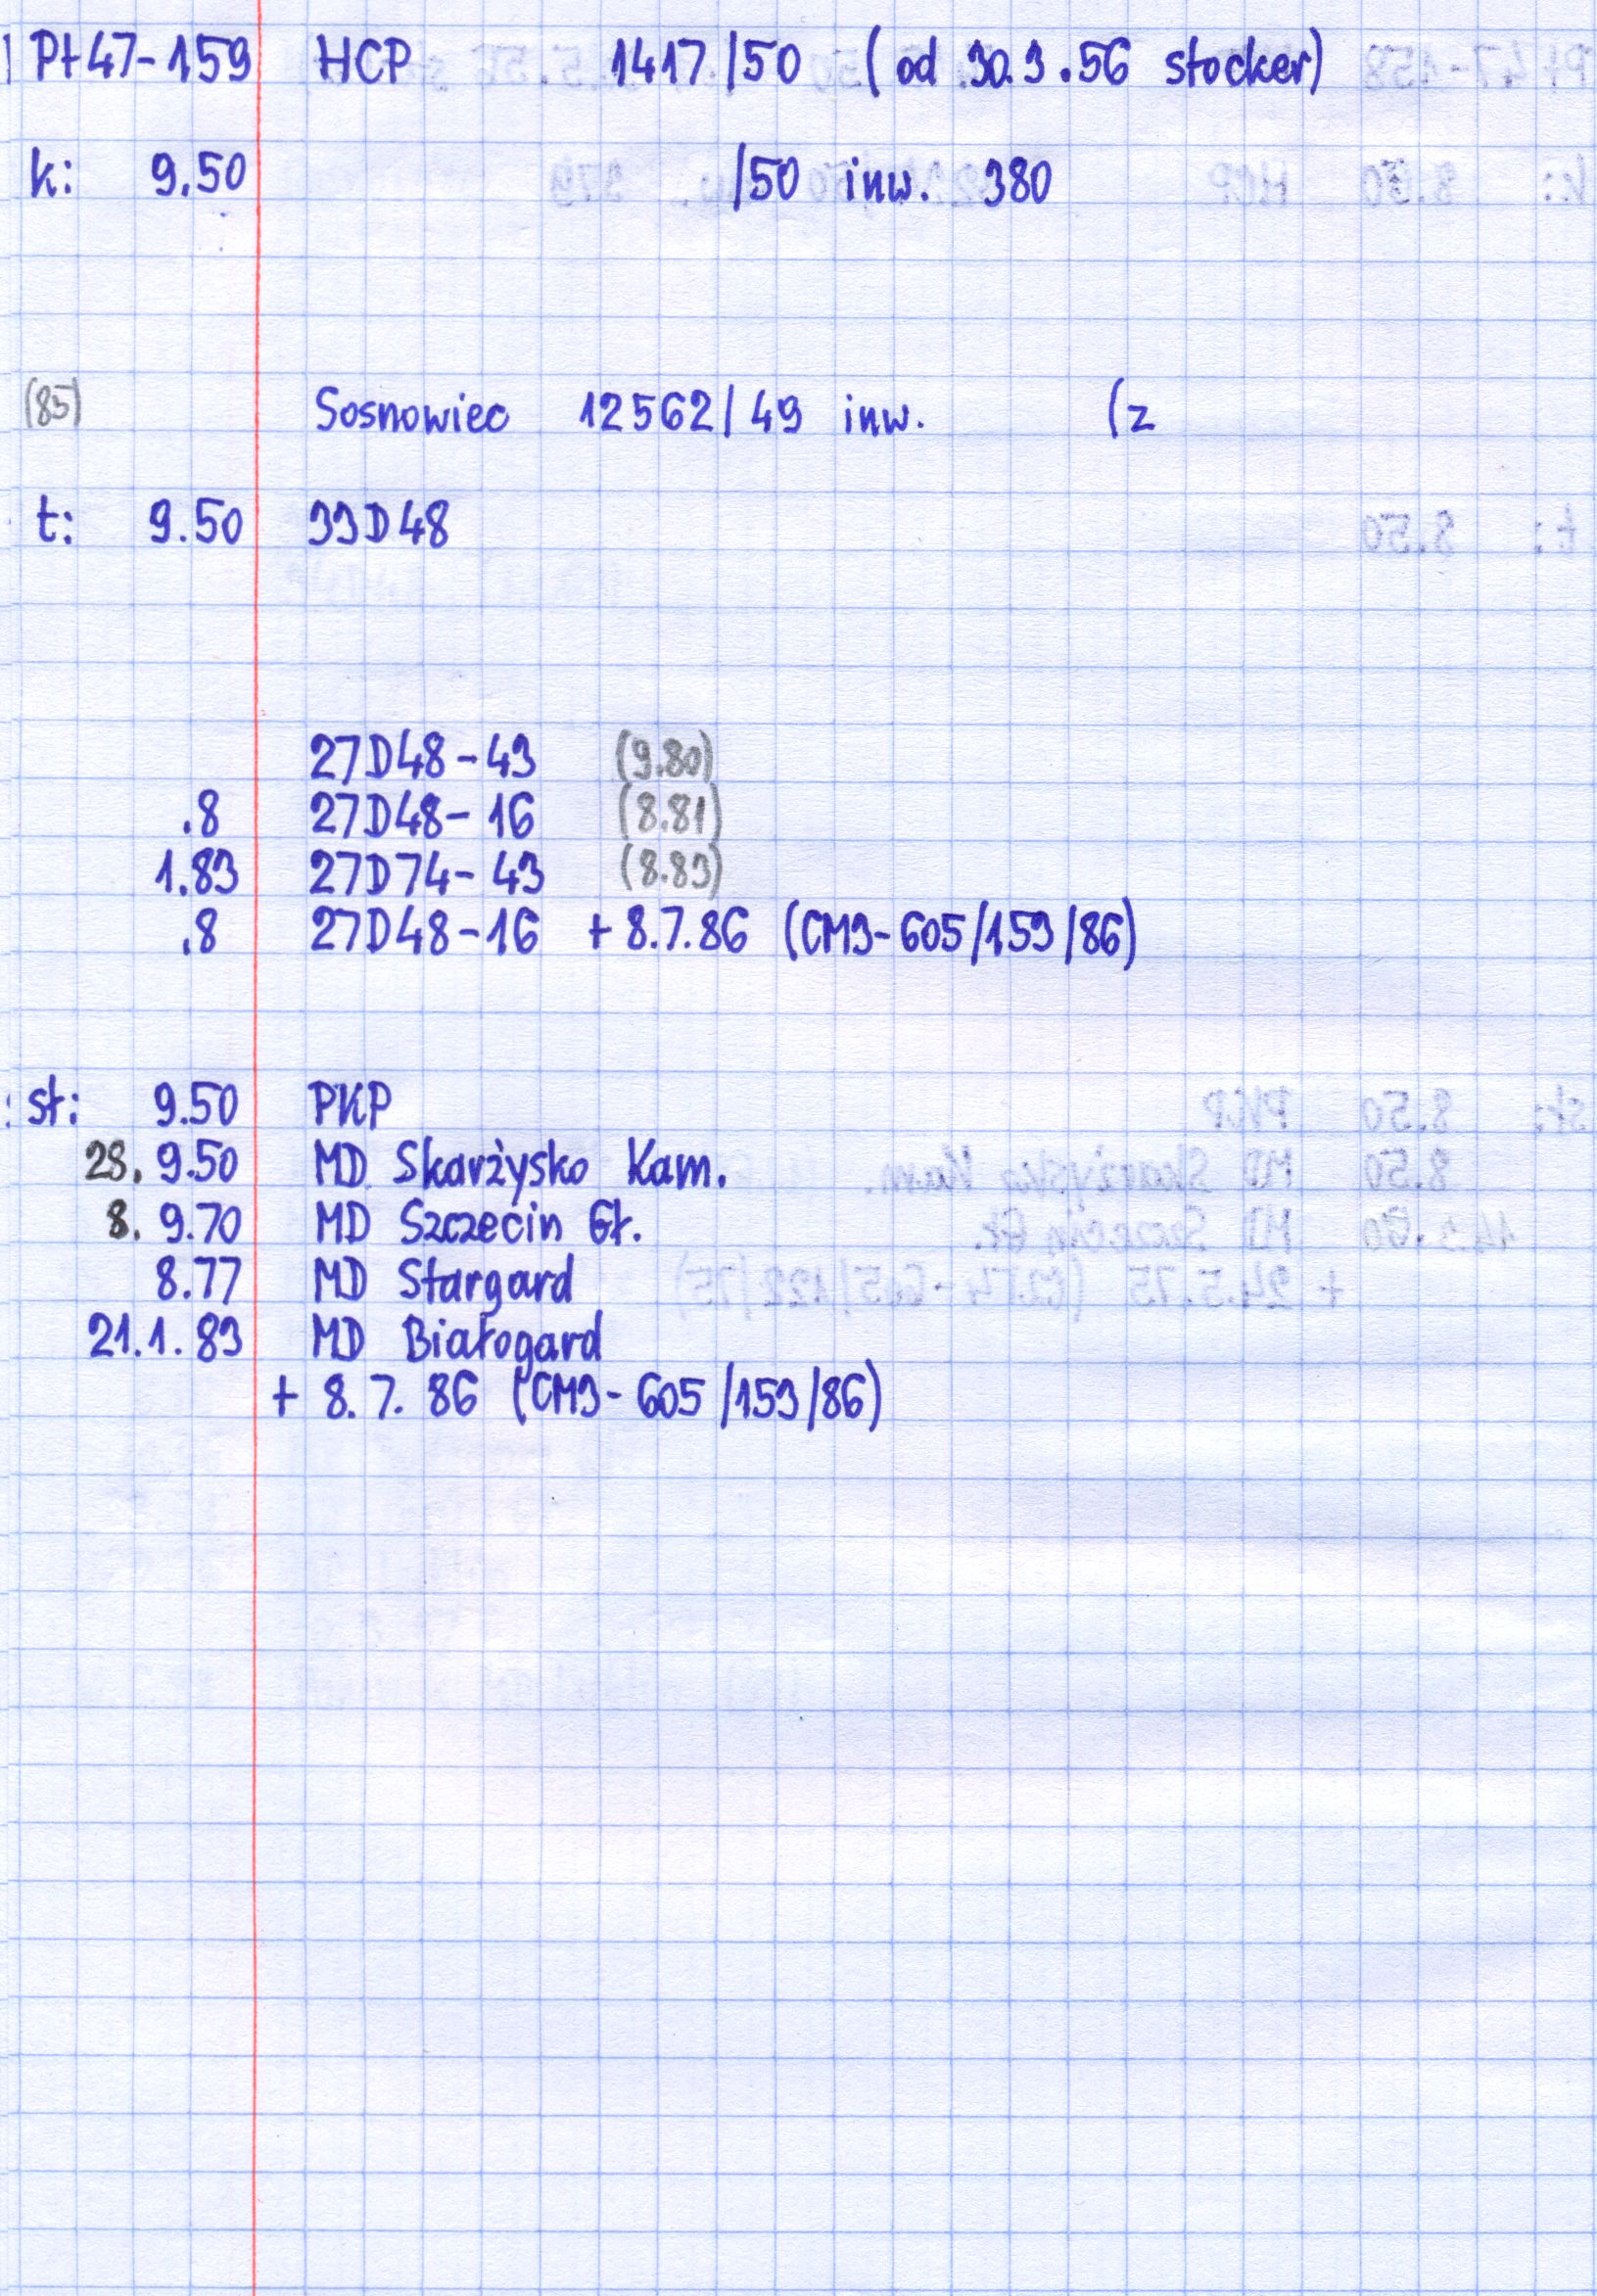 Pt47-159 HCP 1417/50 (od 30.3.56 stocker)
k: 9.50 /50 inw. 380
(85) Sosnowiec 12562/49 inw. (z
t: 9.50 33D48
27D48-43 (9.80)
.8 27D48-16 (8.81)
1.83 27D74-43 (8.83)
.8 27D48-16 + 8.7.86 (CM3-605/159/86)
st: 9.50 PKP
28. 9.50 MD Skarżysko Kam.
8. 9.70 MD Szczecin Gł.
8.77 MD Stargard
21.1.83 MD Białogard
+ 8.7.86 (CM3-605/159/86)